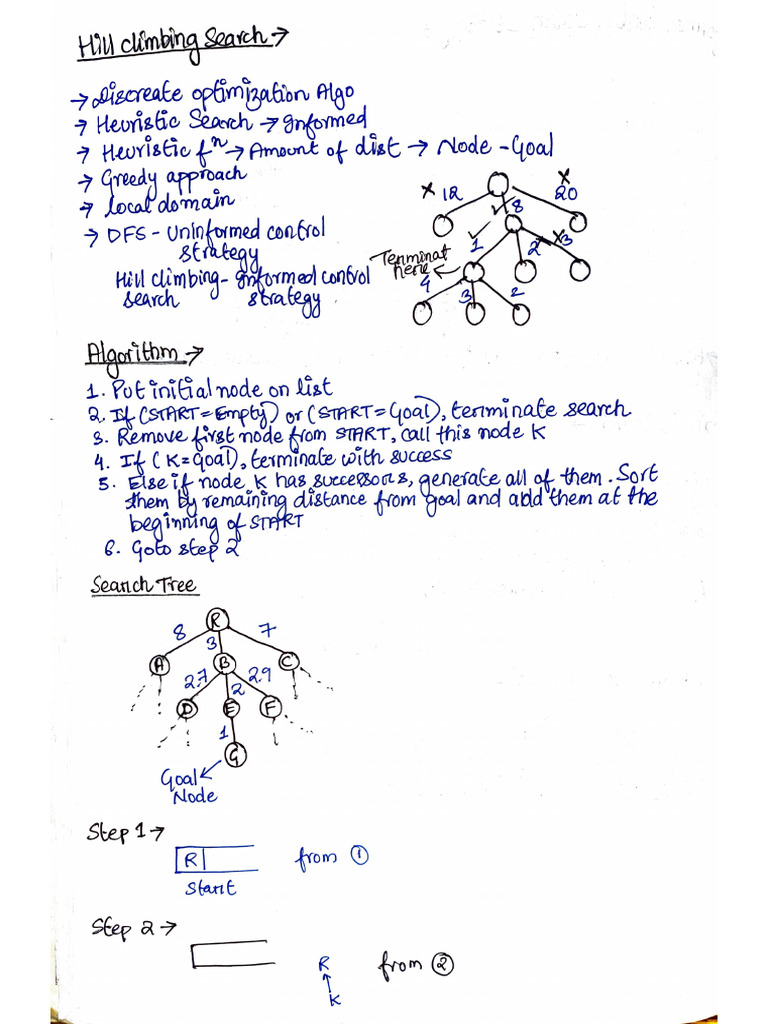 Hill climbing Search →
→ Discreate optimization Algo
→ Heuristic Search → Informed
→ Heuristic fⁿ → Amount of dist → Node - Goal
→ Greedy approach
→ local domain
→ DFS - Uninformed control
strategy
Hill climbing - Informed control
search strategy
x 12 8 x 20
1 2 x 3
Terminat
here
4 3 2
Algorithm →
1. Put initial node on list
2. If (START = Empty) or (START = Goal), terminate search
3. Remove first node from START, call this node K
4. If (K = Goal), terminate with success
5. Else if node K has successors, generate all of them. Sort
them by remaining distance from goal and add them at the
beginning of START
6. Goto step 2
Search Tree
R
8 3 7
A B C
2.7 2 2.9
D E F
1
G
Goal
Node
Step 1 →
R from ①
Start
Step 2 →
R from ②
K